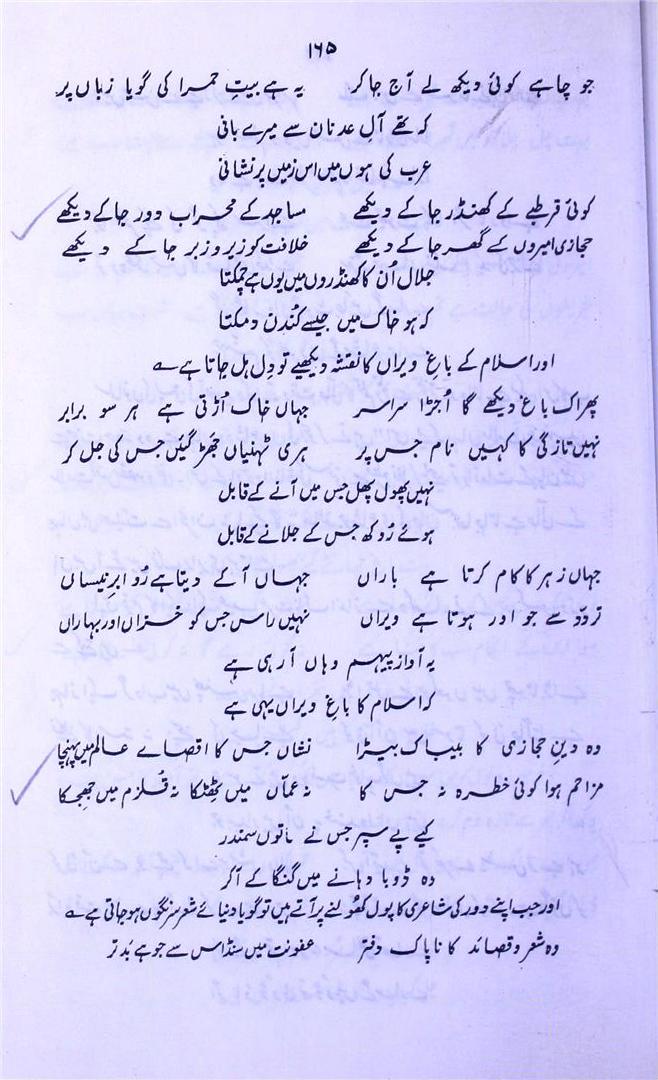 ۱۶۵
جو چاہے کوئی دیکھ لے آج جا کر یہ ہے بیتِ حمرا کی گویا زباں پر
کہ تھے آلِ عدنان سے میرے بانی
عرب کی ہوں میں اس زمیں پر نشانی
کوئی قرطبے کے کھنڈر جا کے دیکھے مساجد کے محراب و در جا کے دیکھے
حجازی امیروں کے گھر جا کے دیکھے خلافت کو زیر و زبر جا کے دیکھے
جلال اُن کا کھنڈروں میں یوں ہے چمکتا
کہ ہو خاک میں جیسے کُندن دمکتا
اور اسلام کے باغِ ویراں کا نقشہ دیکھیے تو دِل ہل جاتا ہے ؎
پھر اک باغ دیکھے گا اُجڑا سراسر جہاں خاک اُڑتی ہے ہر سو برابر
نہیں تازگی کا کہیں نام جس پر ہری ٹہنیاں جھڑ گئیں جس کی جل کر
نہیں پھول پھل جس میں آنے کے قابل
ہوئے رُوکھ جس کے جلانے کے قابل
جہاں زہر کا کام کرتا ہے باراں جہاں آ کے دیتا ہے رُو ابرِ نیساں
تردّد سے جو اور ہوتا ہے ویراں نہیں راس جس کو خزاں اور بہاراں
یہ آواز پیہم وہاں آ رہی ہے
کہ اسلام کا باغِ ویراں یہی ہے
وہ دینِ حجازی کا بیباک بیڑا نشاں جس کا اقصائے عالم میں پہنچا
مزاحم ہوا کوئی خطرہ نہ جس کا نہ عمّاں میں ٹھٹکا نہ قُلزم میں جھجکا
کیے پے سپر جس نے ساتوں سمندر
وہ ڈوبا دہانے میں گنگا کے آ کر
اور جب اپنے دور کی شاعری کا پول کھولنے پر آتے ہیں تو گویا دنیائے شعر سرنگوں ہو جاتی ہے ؎
وہ شعر و قصائد کا ناپاک دفتر عفونت میں سنڈاس سے جو ہے بدتر